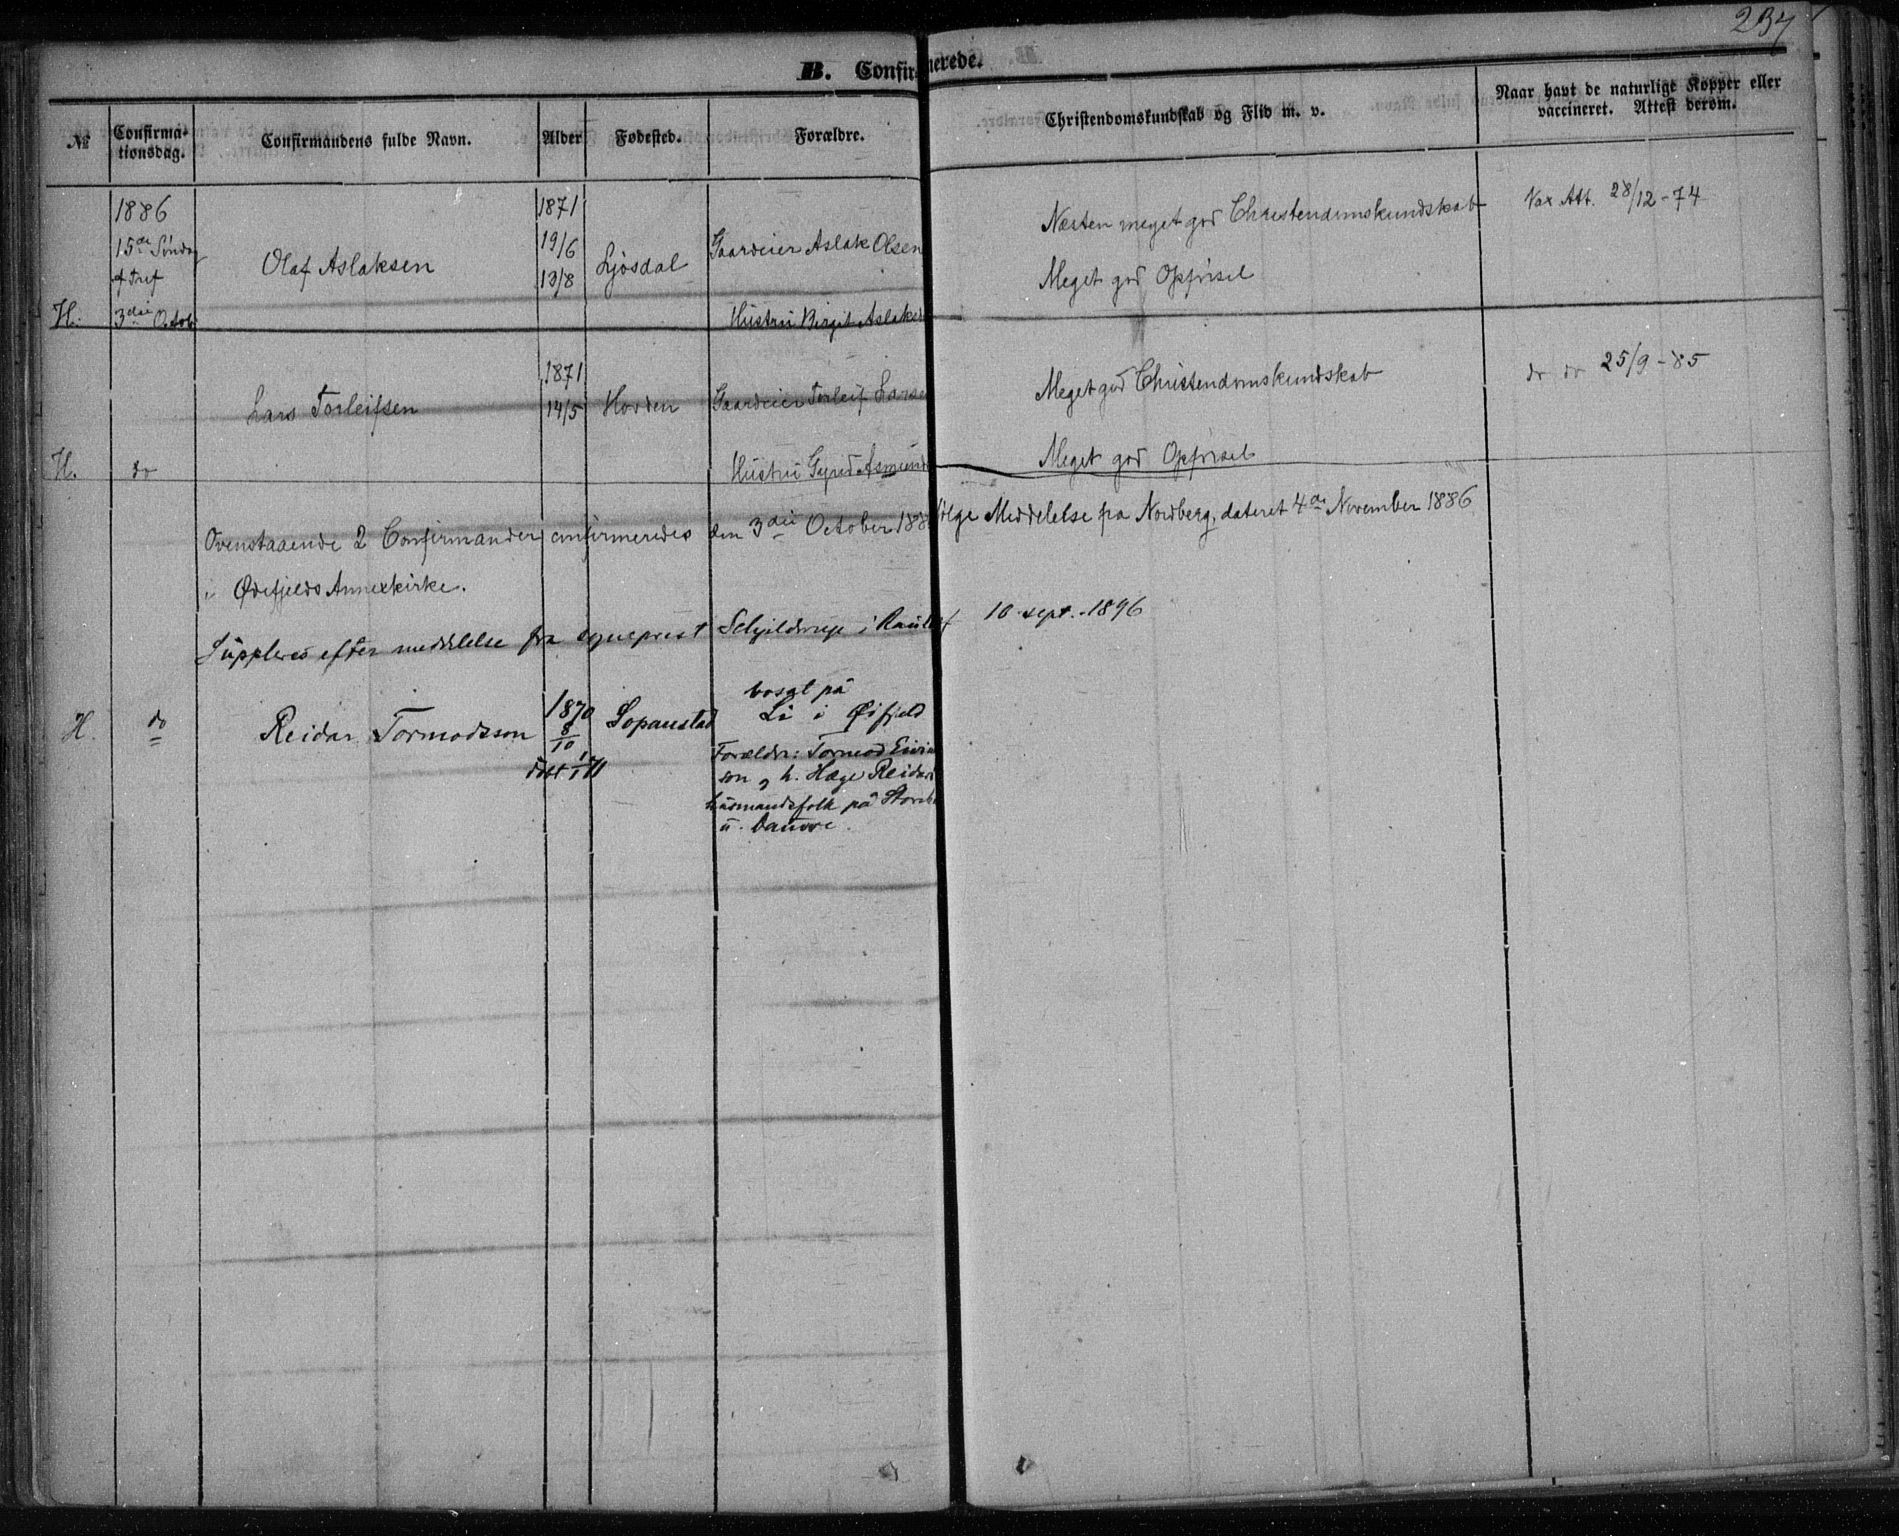 237
B. Confirmerede.
№ Confirma-tionsdag. Confirmandens fulde Navn. Alder Fødested. Forældre. Christendomskundskab og Flid m. v. Naar havt de naturlige Kopper eller vaccineret. Attest derom.
1886 1871
15de Søndag 19/6 Gaardeier Aslak Olsen Næsten meget god Christendomskundskab Vax Att. 28/12-74
Olaf Aslaksen 13/8 Ljosdal Meget god Opførsel
H. 3die Octob Hustru Birgit Aslaks
1871
Lars Torleifsen 14/5 Hovden Gaardeier Torleif Larse Meget god Christendomskundskab do do 25/9-85
H. do Hustru Gyrid Asmund Meget god Opførsel
Ovenstaaende 2 Confirmander confirmeredes den 3die October 188 ølge Meddelelse fra Nordberg, dateret 4de November 1886
i Øifjelds Annexkirke.
Suppleres efter meddelelse fra sogneprest Schjelderup i Rauland 10 sept. 1896
bosat på
H. do Reidar Tormodsson 1870 8/10 Sopanstad Li i Øifjeld
døbt 1/1 71 Forældre: Tormod Eivin
son og h. Hæge Reidars
husmandsfolk på
u.